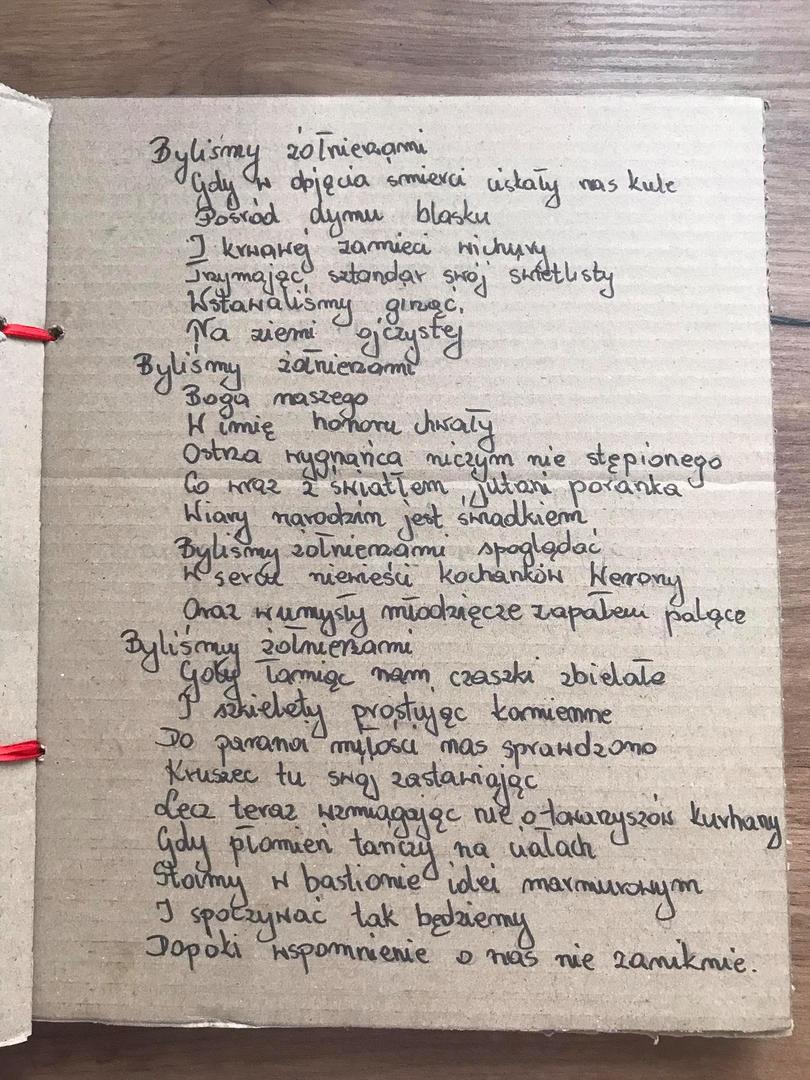 Byliśmy żołnierzami
Gdy w objęcia śmierci ciskały nas kule
Pośród dymu blasku
I krwawej zamieci wichury
Trzymając sztandar swój świetlisty
Wstawaliśmy ginąć
Na ziemi ojczystej
Byliśmy żołnierzami
Boga naszego
W imię honoru chwały
Ostrza wygnańca niczym nie stępionego
Co wraz z światłem jutrzni poranka
Wiary narodzin jest świadkiem
Byliśmy żołnierzami spoglądać
W serca niewieści kochanków Werrony
Oraz w umysły młodzięcze zapałem palące
Byliśmy żołnierzami
Gdy łamiąc nam czaszki zbielałe
I szkielety prostując kamienne
Do paranoi miłości nas sprawdzono
Kruszec tu swój zastawiając
Lecz teraz wzmiągając się o towarzyszów kurhany
Gdy płomień tańczy na ciałach
Stoimy w bastionie idei marmurowym
I spoczywać tak będziemy
Dopóki wspomnienie o nas nie zaniknie.